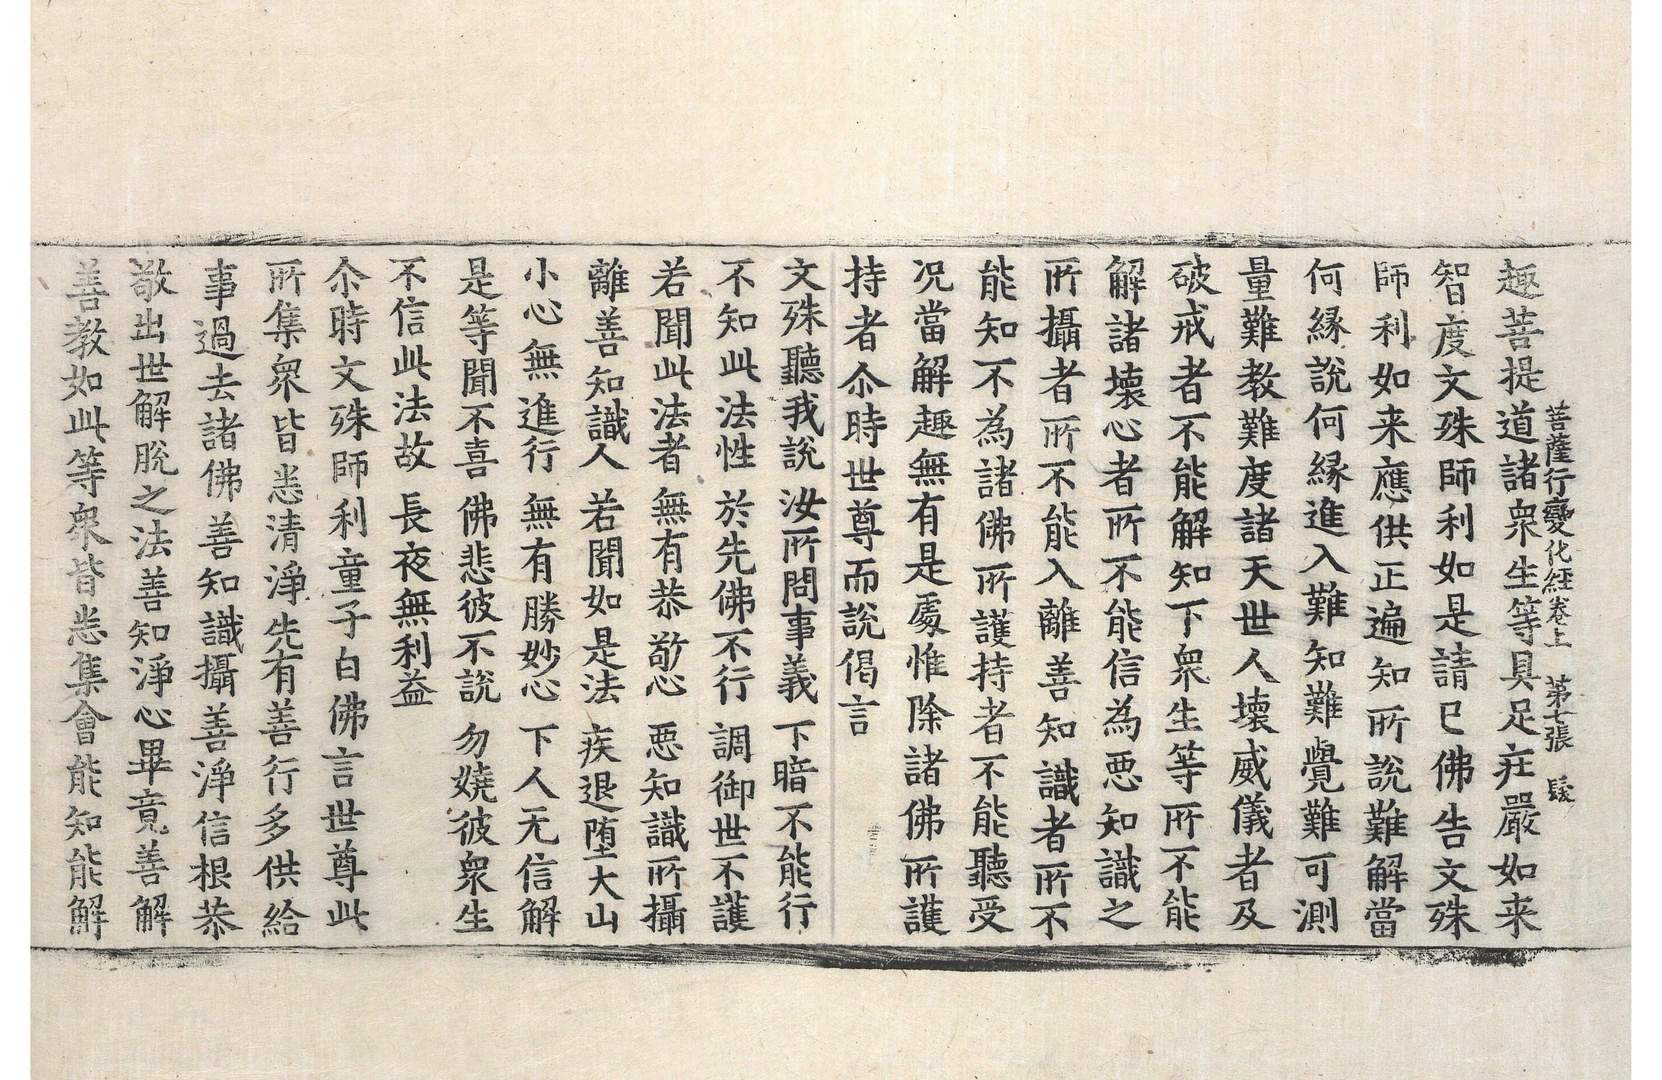 菩薩行變化經卷上　第七張　髮
趣菩提道諸衆生等具足莊嚴如来
智度文殊師利如是請已佛告文殊
師利如来應供正遍知所說難解當
何緣說何緣進入難知難覺難可測
量難教難度諸天世人壞威儀者及
破戒者不能解知下衆生等所不能
解諸壞心者所不能信為惡知識之
所攝者所不能入離善知識者所不
能知不為諸佛所護持者不能聽受
况當解趣無有是處惟除諸佛所護
持者尒時世尊而說偈言
文殊聽我說　汝所問事義　下暗不能行
不知此法性　於先佛不行　調御世不護
若聞此法者　無有恭敬心　惡知識所攝
離善知識人　若聞如是法　疾退堕大山
小心無進行　無有勝妙心　下人无信解
是等聞不喜　佛悲彼不說　勿嬈彼衆生
不信此法故　長夜無利益
尒時文殊師利童子白佛言世尊此
所集衆皆悉清淨先有善行多供給
事過去諸佛善知識攝善淨信根恭
敬出世解脫之法善知淨心畢竟善解
善教如此等衆皆悉集會能知能解